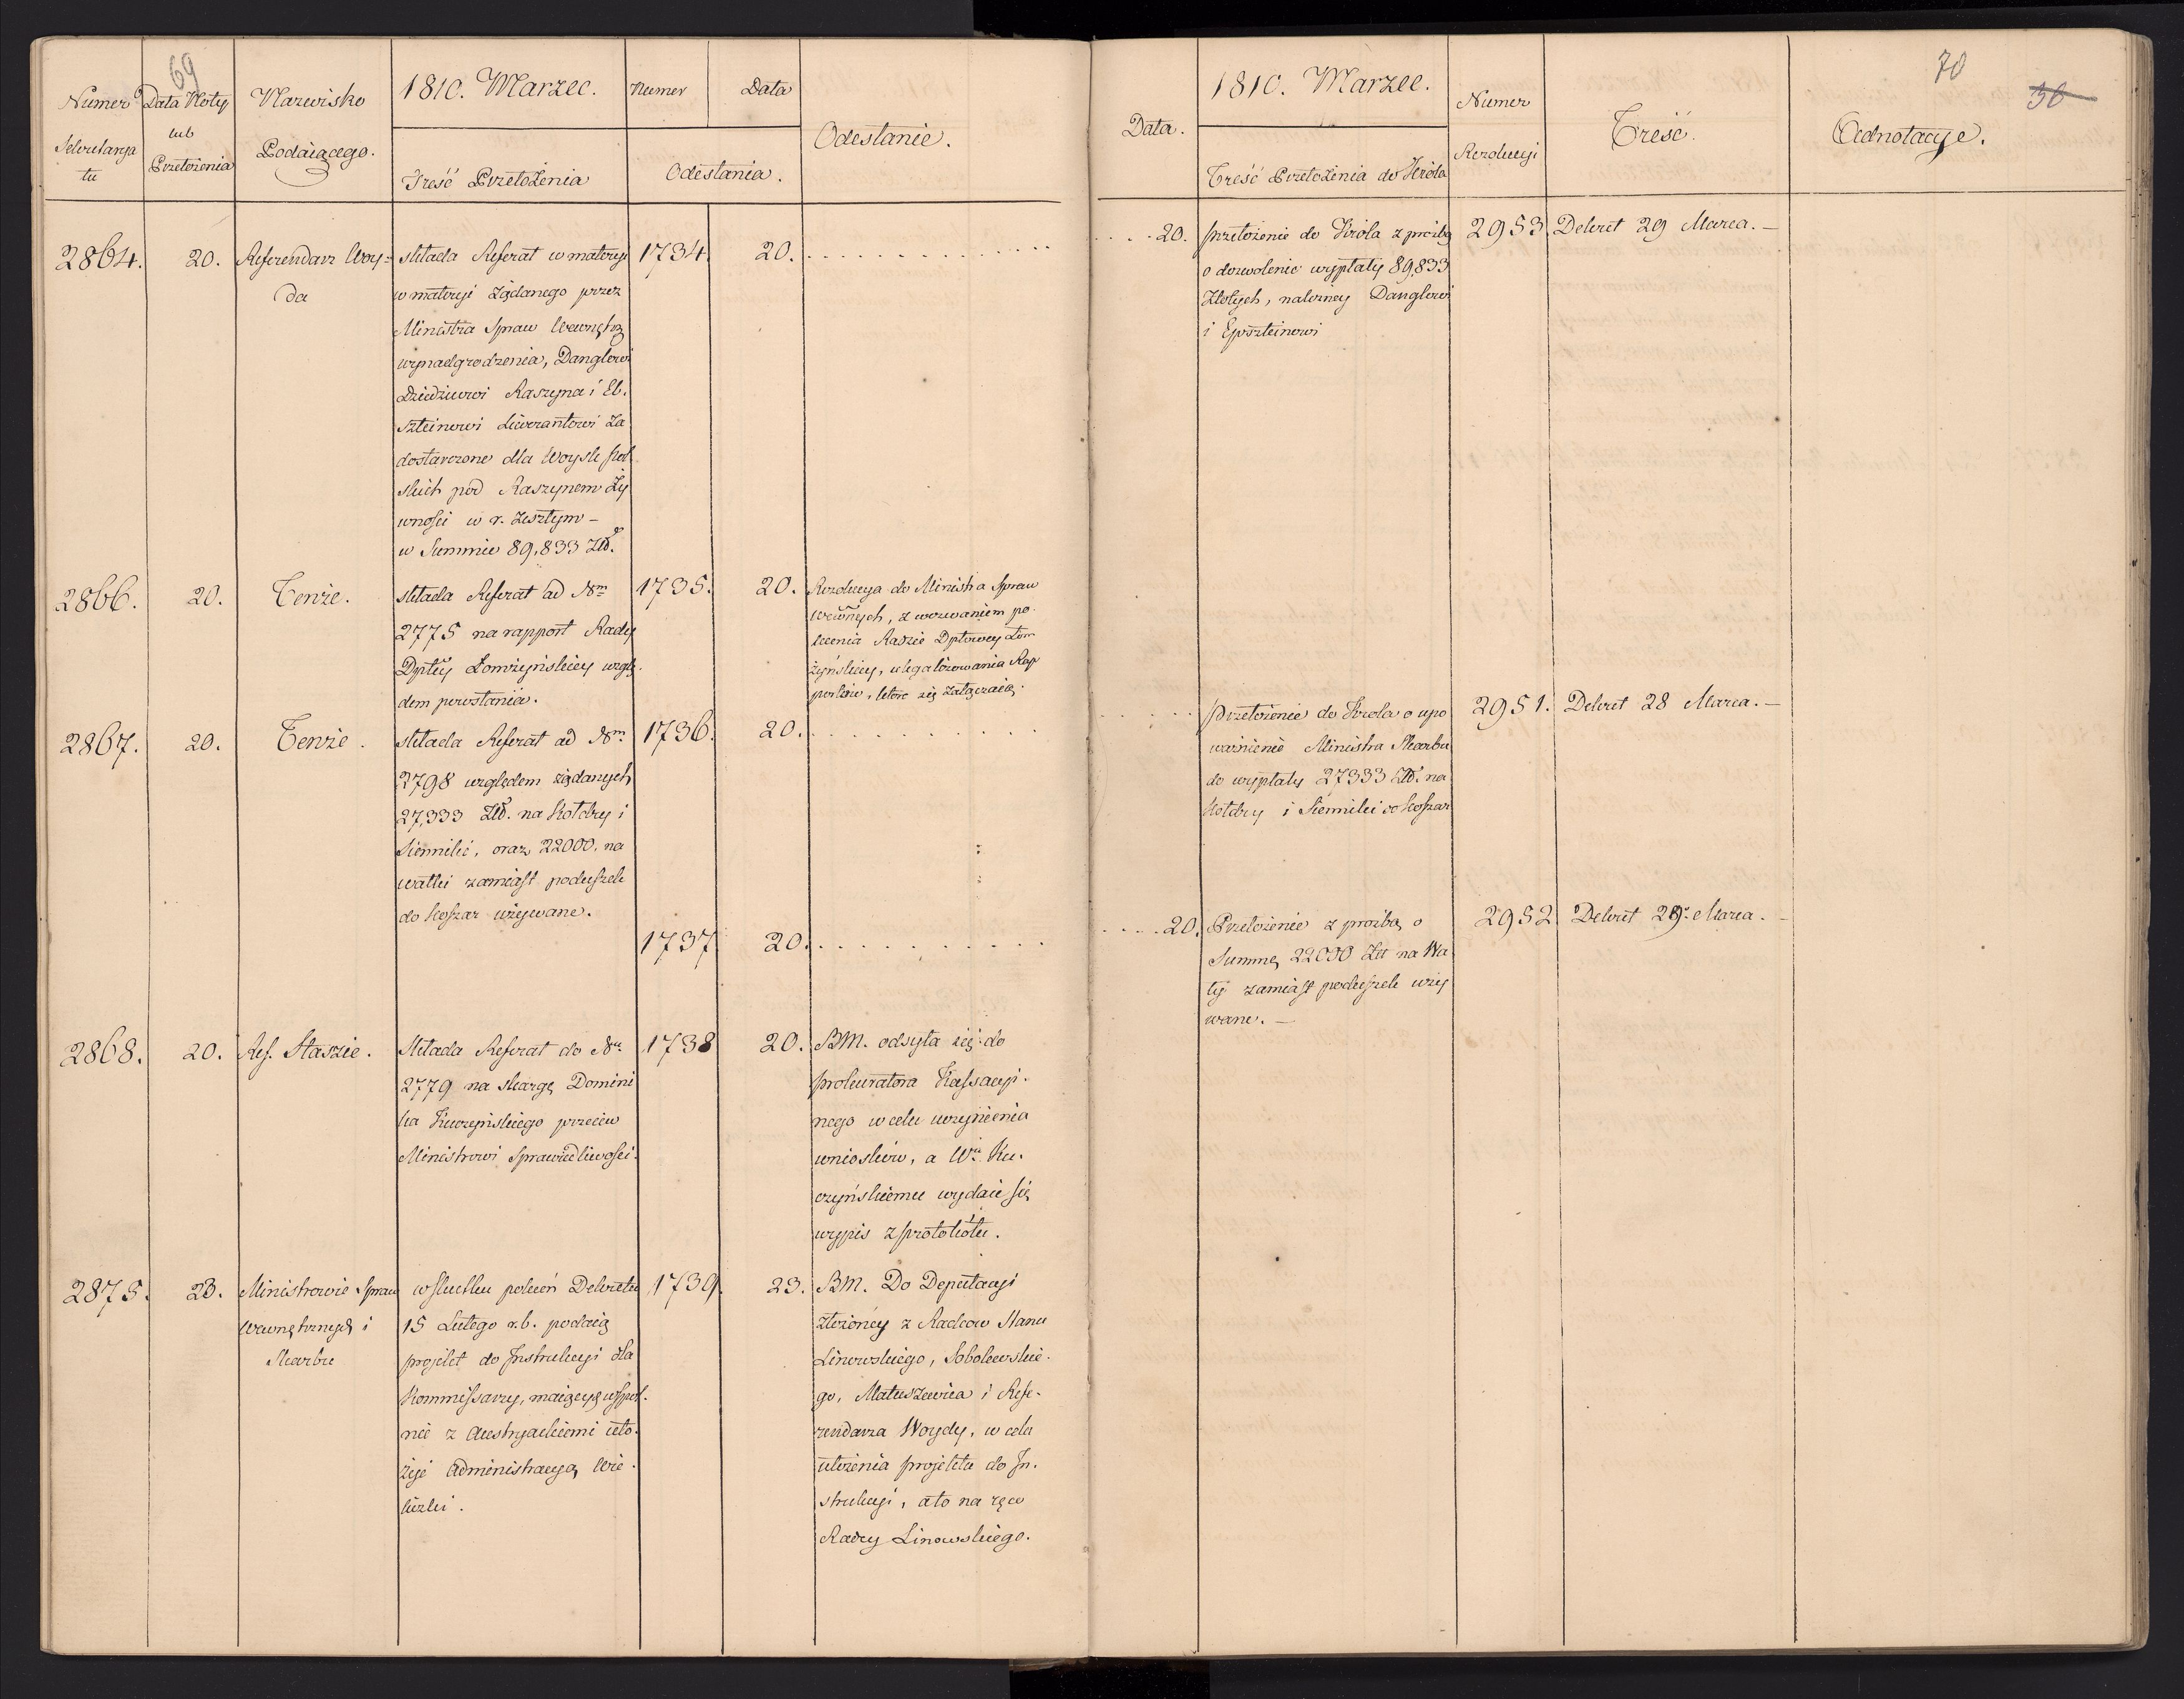 69
Numer
Sekretarya
tu
Data Noty
lub
Przełożenia
Nazwisko
Podaiącego.
1810. Marzec.
Treść Przełożenia
Numer
Data
Odesłania.
Odesłanie.
2864.
20.
Referendarz Woy-
da
składa Referat w materyi
w materyi żądanego przez
Ministra Spraw Wewnętrz
wynadgrodzenia, Danglowi
Dziedzicowi Raszyna i Eb.
szteinowi Liwerantowi za
dostarczone dla Woysk pol
skich pod Raszynem ży
wności w r. zeszłym -
w Summie 89,833 Złł.
1734
20.
2866.
20.
Tenże.
składa Referat ad Nm
2775 na rapport Rady
Dptey Łomżyńskiey wzglę.
dem powstania.
1735.
20.
Rezolucya do Ministra Spraw
Wewnych, z wezwaniem po-
lecenia Radzie Dptowey Łom
żyńskiey, ulegalizowania Rap
portów, które się załączaią.
2867.
20.
Tenże.
składa Referat ad Nm
2798 względem żądanych
27,333 Złł. na Kołdry i
Sienniki, oraz 22000. na
wałki zamiast poduszek
do koszar używane.
1736.
20.
1737
20.
2868.
20.
Ref. Staszic.
Składa Referat do Nu
2779 na skargę Domini
ka Kuczyńskiego przeciw
Ministrowi Sprawiedliwości.
1738
20.
BM. odsyła się do
prokuratora Kassacyi.
nego w celu uczynienia
wniosków, a Wu. Ku.
czyńskiemu wydaie się
wypis z protokółu.
2875.
23.
Ministrowie Spraw
Wewnętrznych i
Skarbu
w skutku poleceń Dekretu
15 Lutego r.b. podaią
projekt do Instrukcyi dla
Kommissarzy, maiących wspól.
nie z Austryackiemi uło.
żyć Administracyą Wie.
liczki.
1739.
23.
BM. Do Deputacyi
złożoney z Radców Stanu
Linowskiego, Sobolewskie.
go, Matuszewica i Refe.
rendarza Woydy, w celu
ułożenia projektu do In.
strukcyi, a to na ręce
Radcy Linowskiego.
70
36
Data.
1810. Marzec.
Treść Przełożenia do Króla
Numer
Rezolucyi
Treść.
Adnotacye.
20.
przełożenie do Króla z prożbą
o dozwolenie wypłaty 89,833
Złotych, należney Danglowi
i Epszteinowi
2953.
Dekret 29 Marca. -
przełożenie do Króla o upo
ważnienie Ministra Skarbu
do wypłaty 27333 Złł. na
Kołdry i Sienniki do koszar
2951.
Dekret 28 Marca. -
20.
Przełożenie z prożbą o
Summę 22000 Złł na Wa
łki zamiast poduszek uży
wane. -
2952
Dekret 29. Marca. -